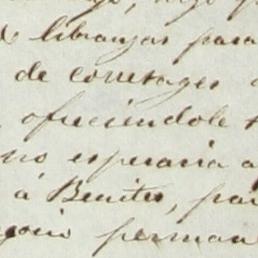 libranzas para
de corretages
ofreciendole
no esperaria a
á Benites, par
perman